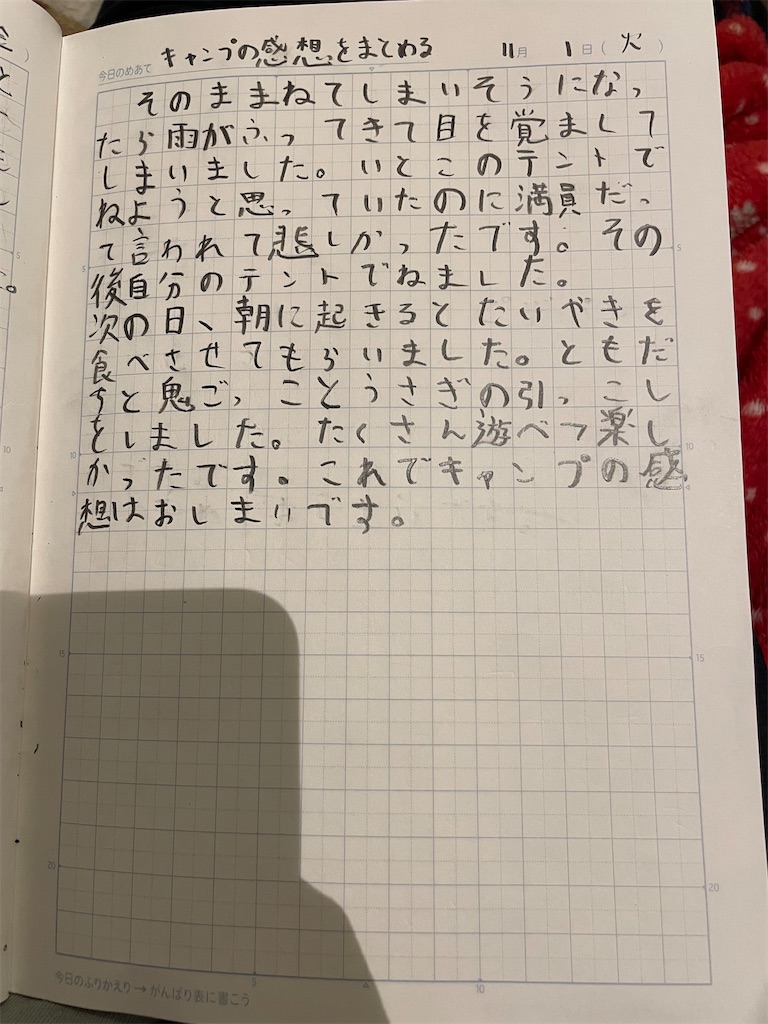 今日のめあて キャンプの感想をまとめる 11月 1日(火)
そのままねてしまいそうになっ
たら雨がふってきて目を覚まして
しまいました。いとこのテントで
ねようと思っていたのに満員だっ
て言われて悲しかったです。その
後自分のテントでねました。
次の日、朝に起きるとたいやきを
食べさせてもらいました。ともだ
ちと鬼ごっことうさぎの引っこし
をしました。たくさん遊べて楽し
かったです。これでキャンプの感
想はおしまいです。
5
5
10
10
15
15
20
20
5
10
今日のふりかえり→がんばり表に書こう